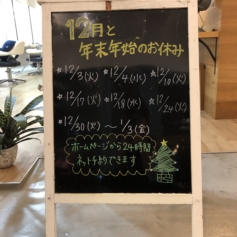 12月と
年末年始のお休み
★12/3(火) ★12/4(水) ★12/10(火)
★12/17(火) ★12/18(水) ★12/24(火)
★12/30(月) ～ 1/3(金)
ホームページから24時間
ネット予約できます